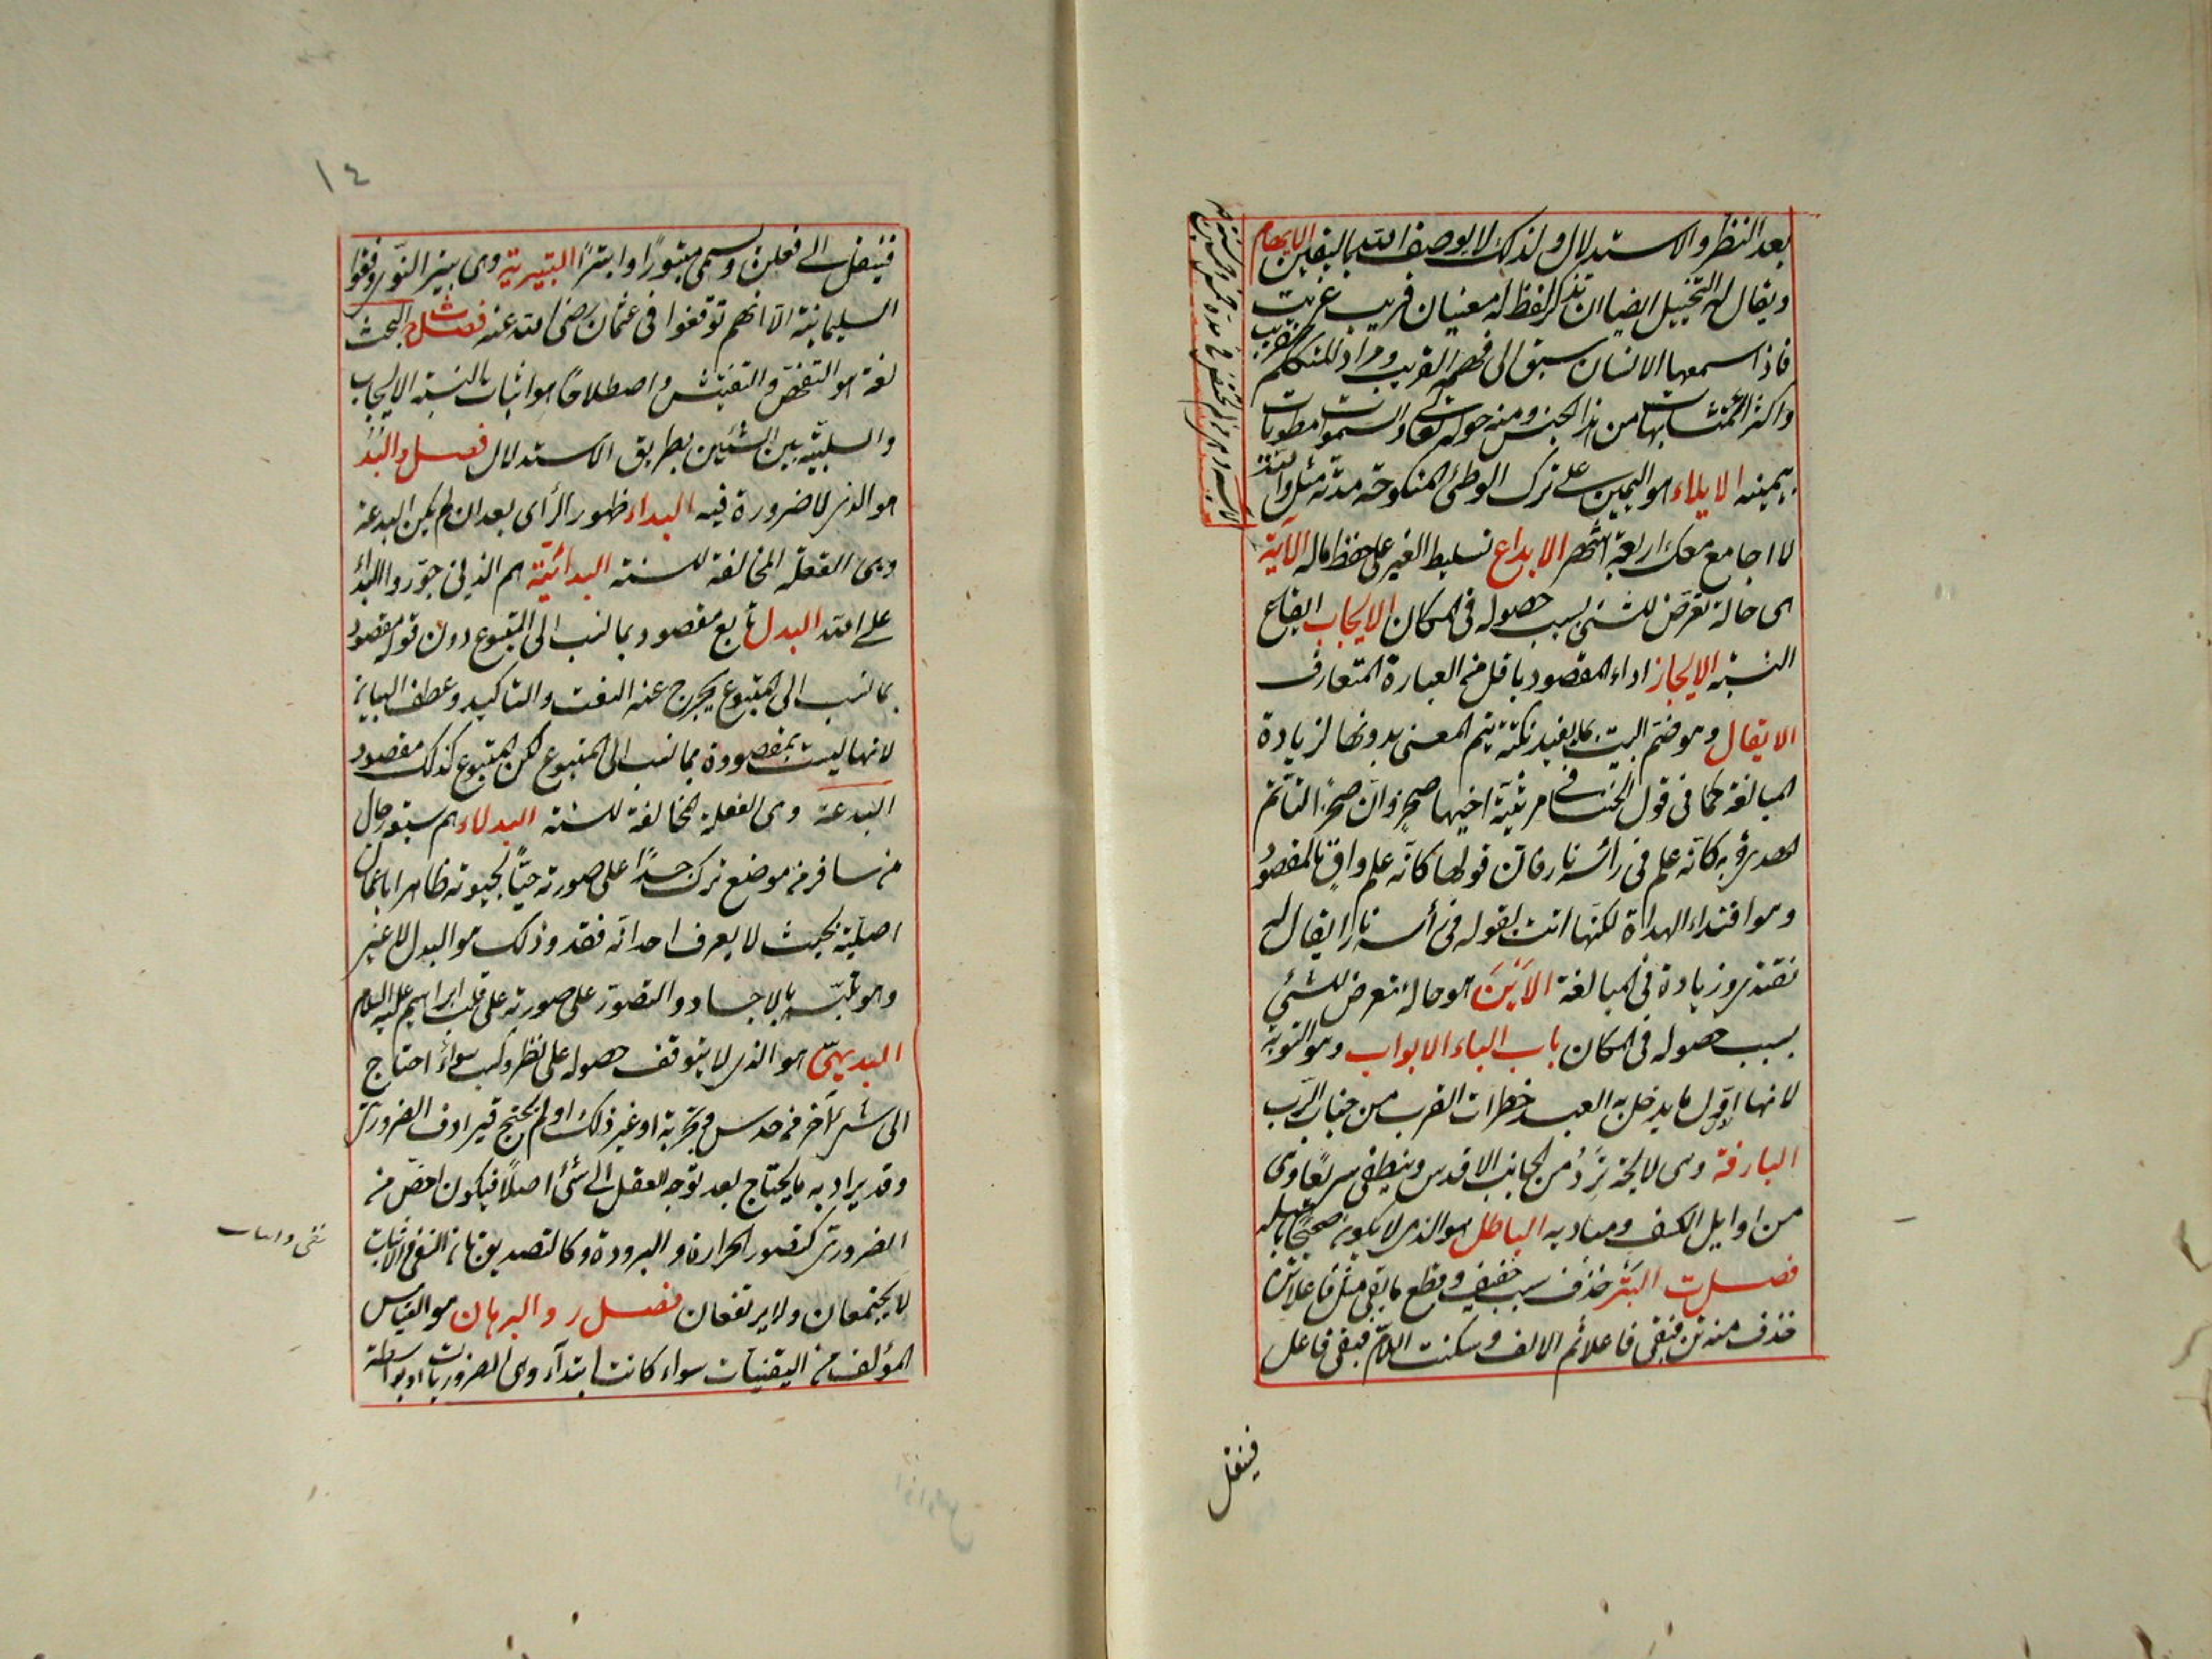 بعد النظر والاستدلال ولذلك لا يوصف الله باليقين الايهام
ويقال له التخييل ايضا ان تذكر لفظ له معنيان قريب غريب
فاذا سمعها الانسان سبق الى فهمه القريب ومراد للمتكلم الغريب
واكثر المتشابهات من هذا الجنس ومنه قوله تعالى والسموات مطويات
بيمينه الايلاء هو اليمين على ترك الوطئ المنكوحة مدته مثل والله
لا اجامعك اربعة اشهر الايداع تسليط الغير على حفظ ماله الآية
هى حالة تعرض للشئ بسبب حصوله فى المكان الايجاب ايقاع
النسبة الايجاز اداء المقصود باقل من العبارة المتعارف
الايقال وهو ختم البيت بما يفيد نكتة يتم المعنى بدونها لزيادة
المبالغة كما فى قول الخنساء فى مرثية اخيها صخر وان صخرا لتاتم
الهداة به كانه علم فى رأسه نار فان قولها كانه علم واف بالمقصود
وهو اقتداء الهداة لكنها اتت بقوله فى رأسه نار ايقال له
تقتد وزيادة فى المبالغة الاَيْنَ هو حالة تعرض للشئ
بسبب حصوله فى المكان باب الباء الابواب وهو التوبة
لانها اول ما يدخل به العبد حظرات القرب من جناب الرب
البارقة وهى لايحة تَرِدُ من الجانب الاقدس وينطفى سريعا وهى
من اوايل الكشف ومباديه الباطل هو الذى لا يكون صحيحا باصله
فصل ت البتر حذف سبب خفيف وقطع ما بقى مثل فاعلاتن
حذف منه تن فبقى فاعلا ثم الالف وسكنت اللام فبقى فاعل
فينقل
١٤
فينقل الى فعلن ويسمى مبتورا وابترا البتيرية هى بتير النور وافقوا
السليمانية الا انهم توقفوا فى عثمان رضى الله عنه فصل ث البحث
لغة هو التفحص والتفتيش واصطلاحا هو اثبات النسبة الايجاب
والسلبية بين الشئين بطريق الاستدلال فصل د البُدّ
هو الذى لا ضرورة فيه البداء ظهور الرأى بعد ان لم يكن البدعة
وهى الفعلة المخالفة للسنة البدائية هم الذين جوزوا البداء
على الله البدل تابع مقصود بما نسب الى المتبوع دون قوله مقصود
بما نسب الى المتبوع يخرج عنه النعت والتاكيد وعطف البيان
لانها ليست بمقصودة بما نسب الى المتبوع لكن المتبوع كذلك مقصود
البدعة وهى الفعلة المخالفة للسنة البدلاء هم سبعة رجال
من سافر من موضع ترك جسدا على صورته حيا بحيوته ظاهرا باعمال
اصلية بحيث لا يعرف احد انه فقد وذلك هو البدل لا غير
وهو تلبسه بالاجساد والتصور على صورته على قلب ابراهيم عليه السلام
البديهى هو الذى لا يتوقف حصوله على نظر وكسب سواء احتاج
الى شئ آخر من حدس وتجربة او غير ذلك او لم يحتج فيرادف الضرورى
وقد يراد به ما لا يحتاج بعد توجه العقل الى شئ اصلا فيكون اخص من
الضرورى كتصور الحرارة والبرودة وكالتصديق بان النفى والاثبات
نفى و اثبات
لا يجتمعان ولا يرتفعان فصل ر والبرهان هو القياس
المؤلف من اليقينيات سواء كانت ابتداء وهى الضروريات او بواسطة